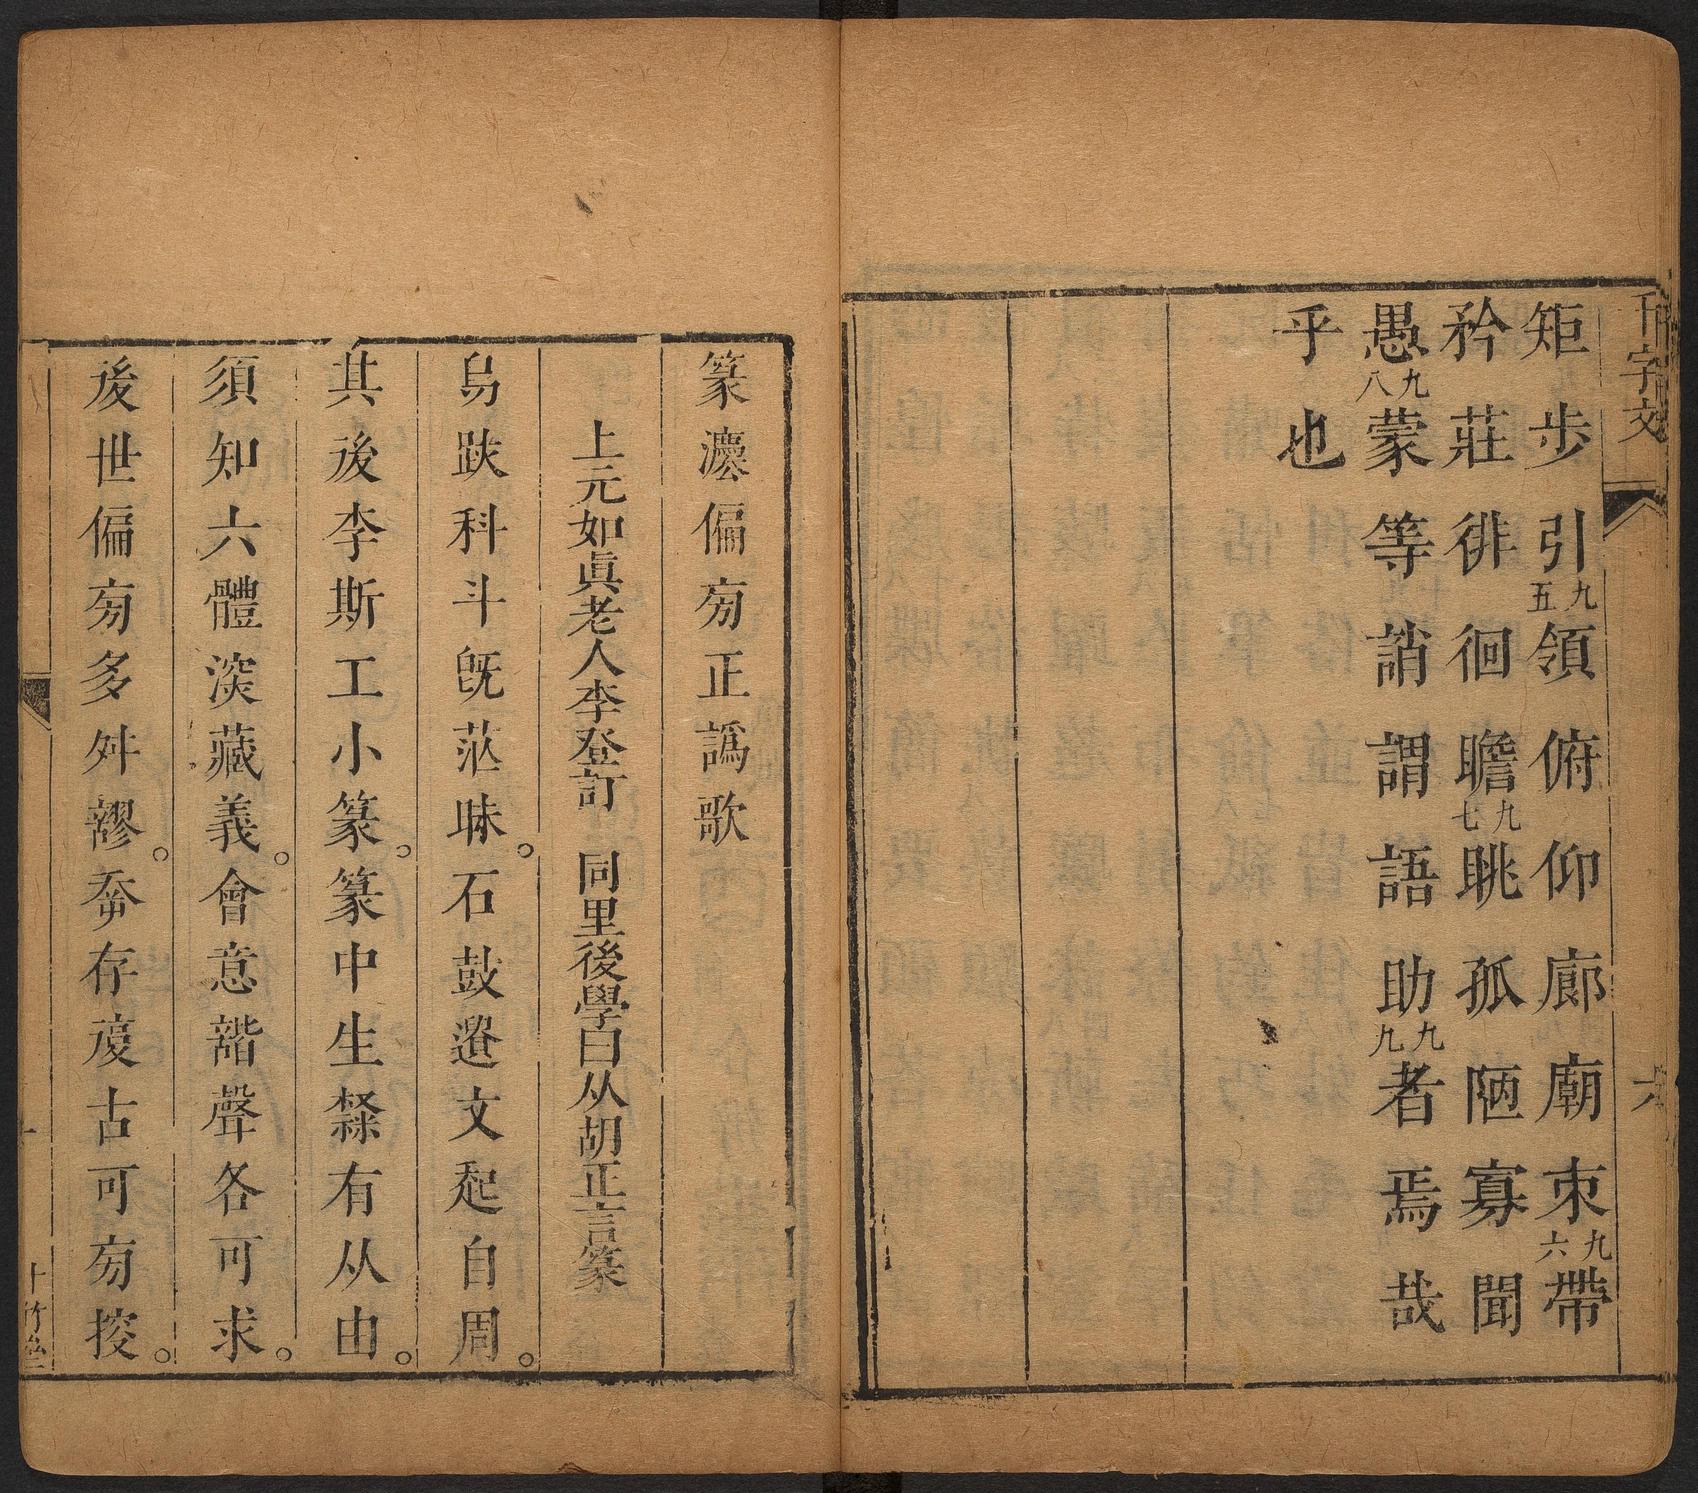 千字文
六
矩步引九五領俯仰廊廟朿九六帶
矜莊徘徊瞻九七眺孤陋寡聞
愚九八蒙等誚謂語助九九者焉哉
乎也
篆灋偏㫄正譌歌
上元如眞老人李登訂 同里後學曰从胡正言篆
鳥跌科斗旣茫昧。石鼓遺文起自周。
其後李斯工小篆。篆中生隸有从由。
須知六體深藏義。會意諧聲各可求。
後世偏㫄多舛謬。存古可㫄
一
十竹